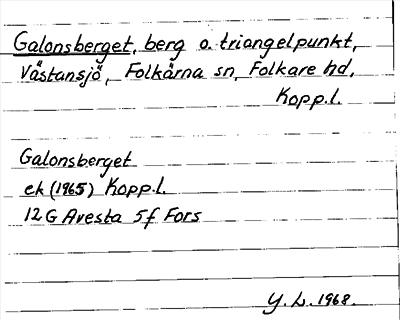 Galonsberget, berg o. triangelpunkt,
Västansjö, Folkärna sn, Folkare hd,
Kopp.l.
Galonsberget
ek (1965) Kopp.l.
12 G Avesta 5f Fors
Y. L. 1968.